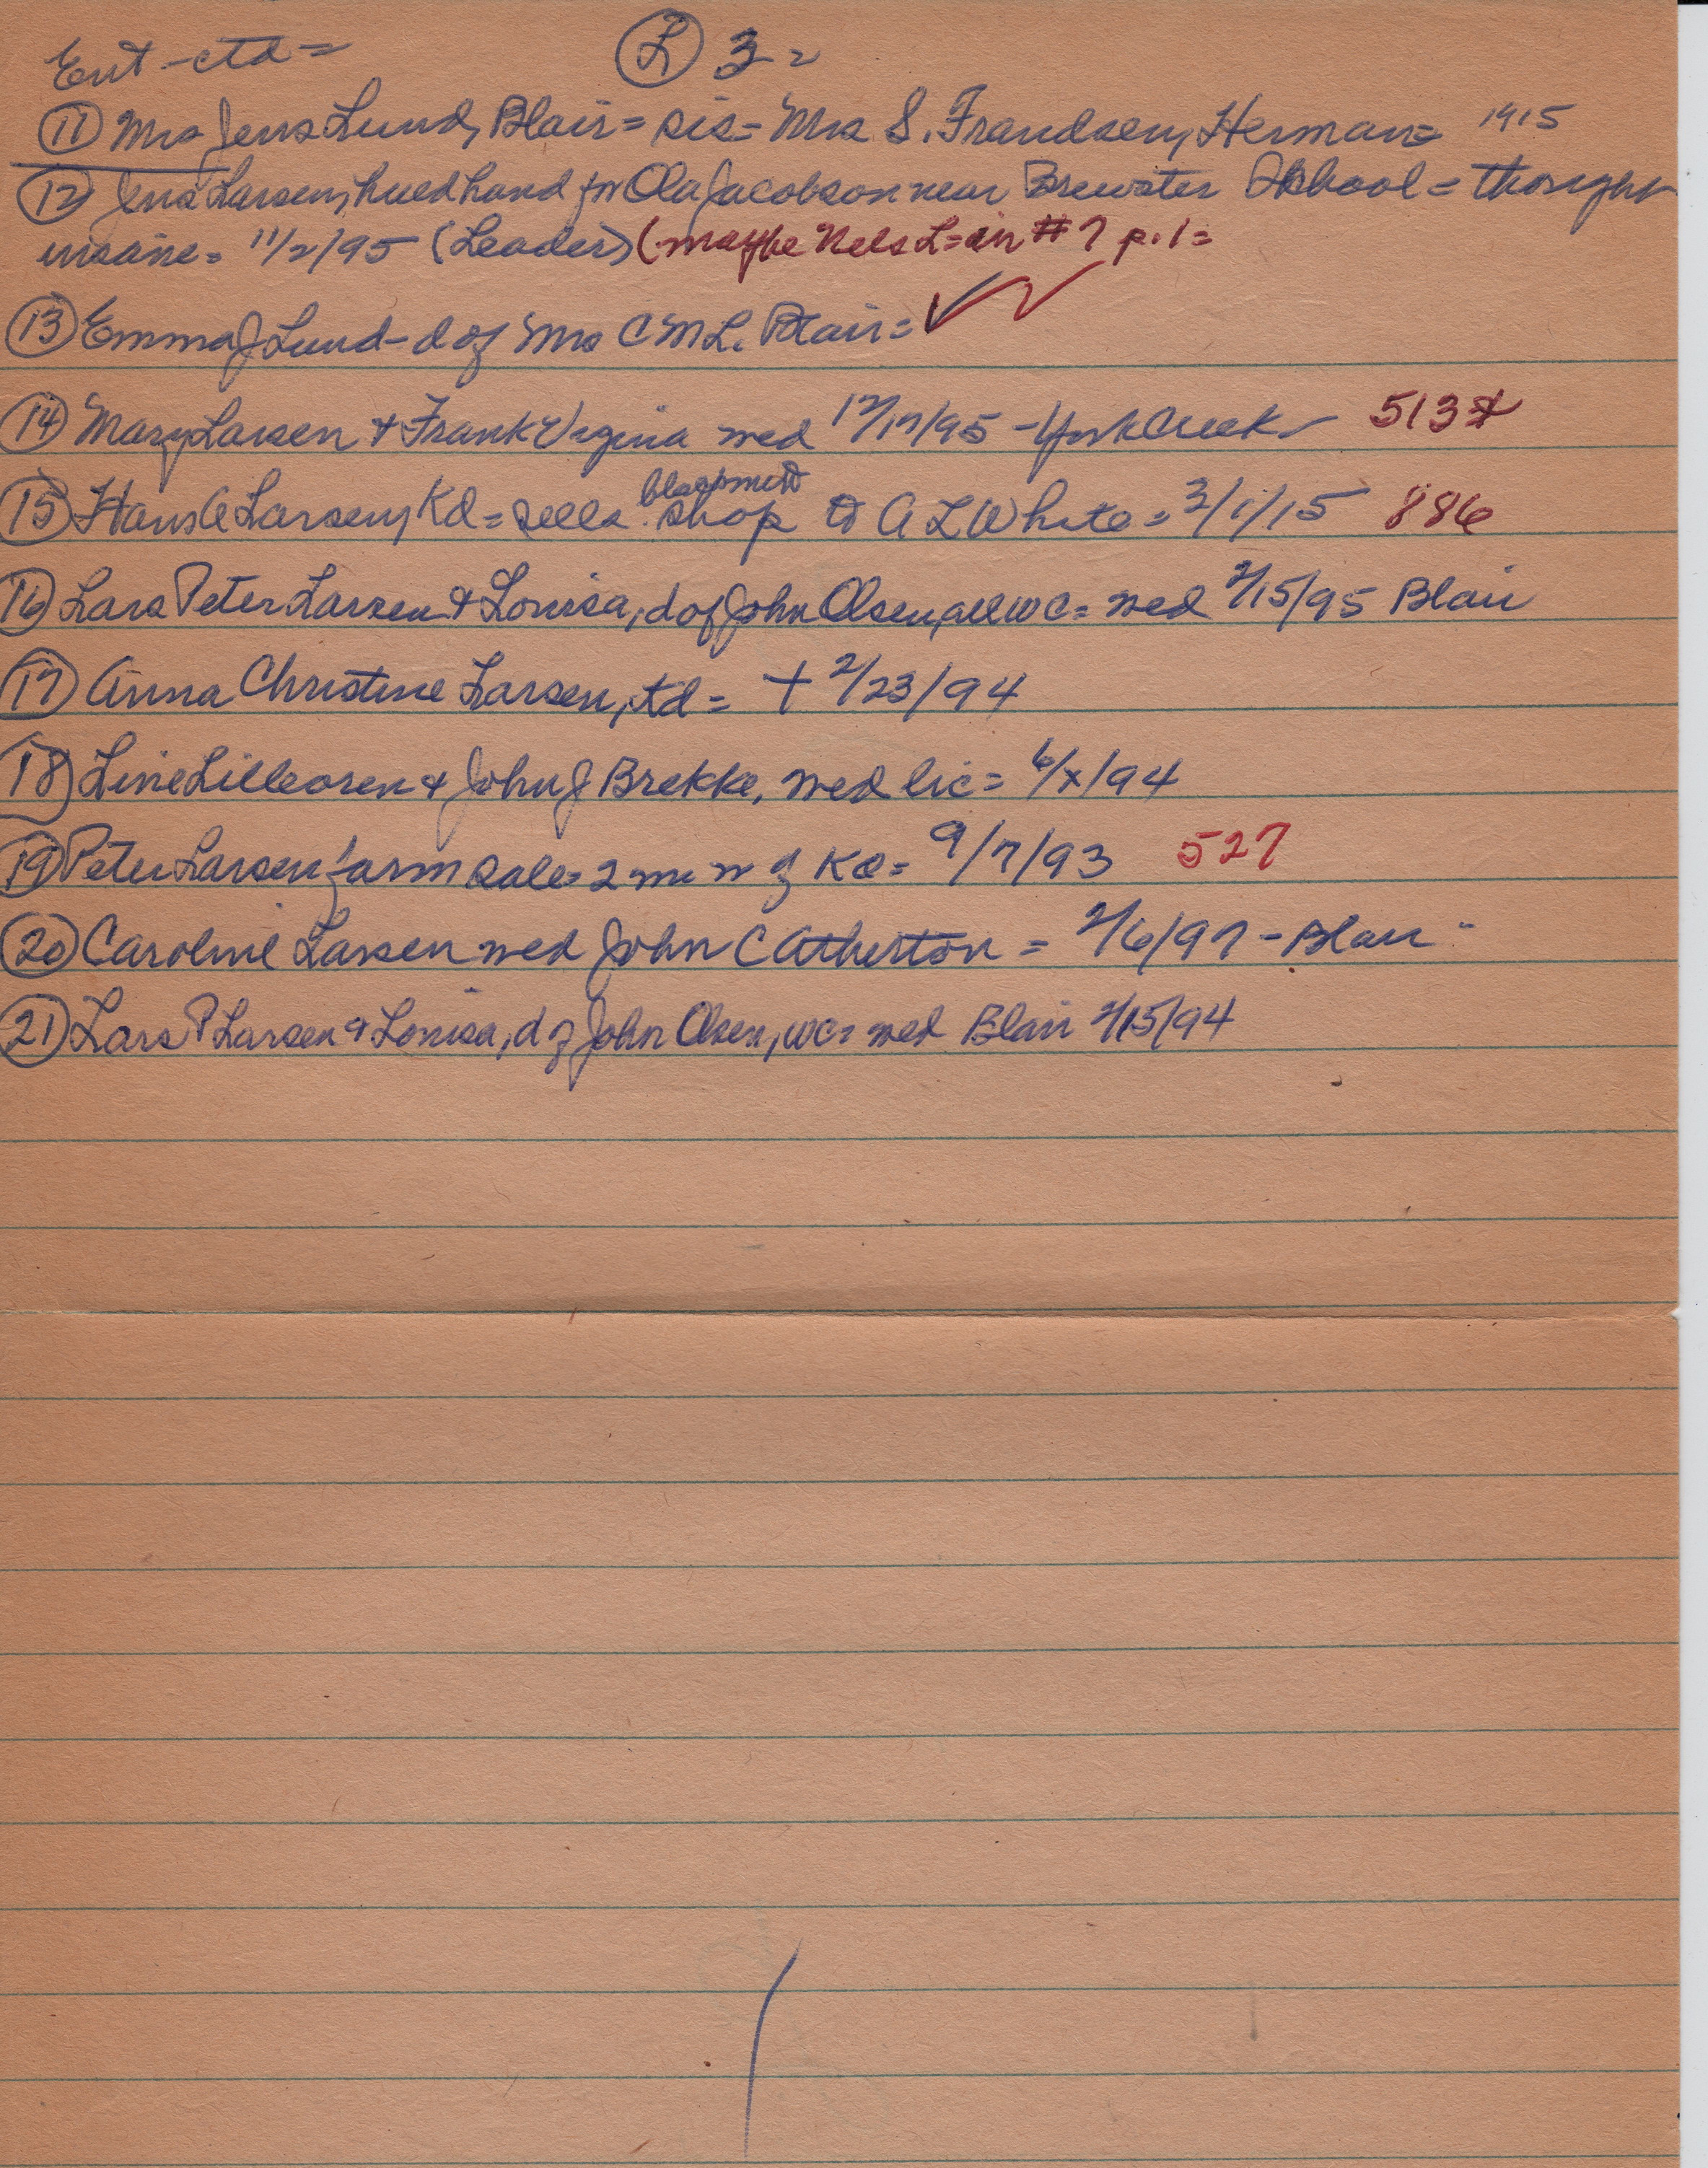 Ent - ctd = (L) 3 =
(11) Mrs Jens Lund, Blair = sis = Mrs S. Frandsen, Herman = 1915
(12) Jens Larsen, hired hand for Ola Jacobson near Brewster School = thought
insane = 11/2/95 (Leader) (maybe Nels L = in #7 p.1 =
(13) Emma J Lund - d of Mrs C M L. Blair = ✓✓
(14) Mary Larsen + Frank wed 12/17/95 - York Creek 513
(15) Hans A Larsen, Kd = sells blacksmith shop to A L White = 3/1/15 886
(16) Lars Peter Larsen + Louisa, d of John Olsen, all WC = wed 2/15/95 Blair
(17) Anna Christine Larsen, Kd = + 2/23/94
(18) Line + John J Brekke, wed lic = 6/x/94
(19) Peter Larsen farm sale = 2 mi n of Kd = 9/7/93 527
(20) Caroline Larsen wed John C Atherton = 2/6/97 - Blair
(21) Lars P Larsen + Louisa, d of John Olsen, WC = wed Blair 2/15/94